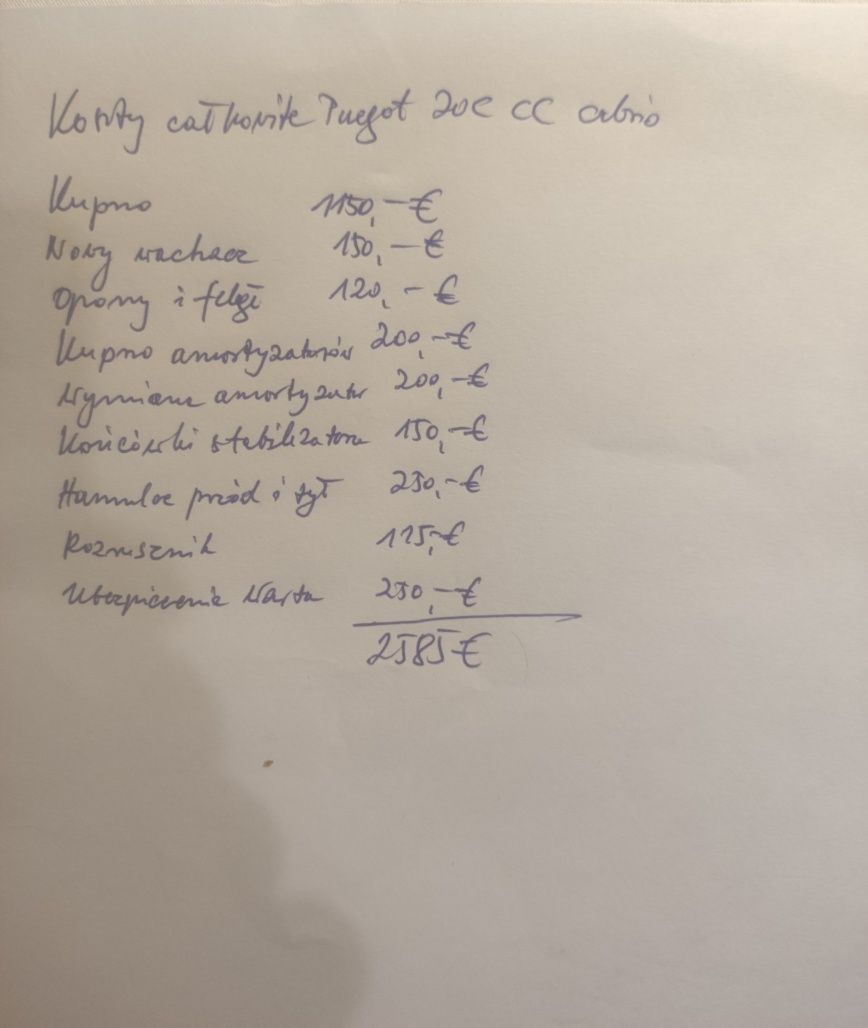 Koszty całkowite Puegot 206 CC cabrio
Kupno 1150,-€
Nowy wachacz 150,-€
Opony i felgi 120,-€
Kupno amortyzatorów 200,-€
Wymiana amortyzator 200,-€
Końcówki stabilizatora 150,-€
Hamulce przód i tył 250,-€
Rozrusznik 115,-€
Ubezpieczenie Warta 250,-€
2585€